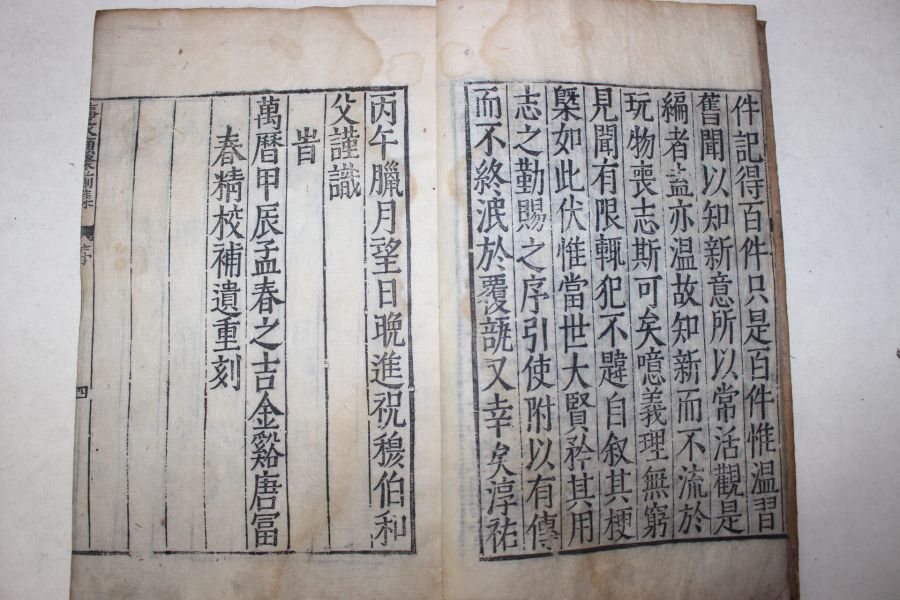 件記得百件只是百件惟温習
舊聞以知新意所以常活觀是
編者盖亦温故知新而不流於
玩物喪志斯可矣噫義理無窮
見聞有限輒犯不韙自叙其梗
槩如此伏惟當世大賢矜其用
志之勤賜之序引使附以有傳
而不終泯於覆瓿又幸矣淳祐
丙午臘月望日晚進祝穆伯和
父謹識
旹
萬曆甲辰孟春之吉金谿唐富
春精校補遺重刻
四